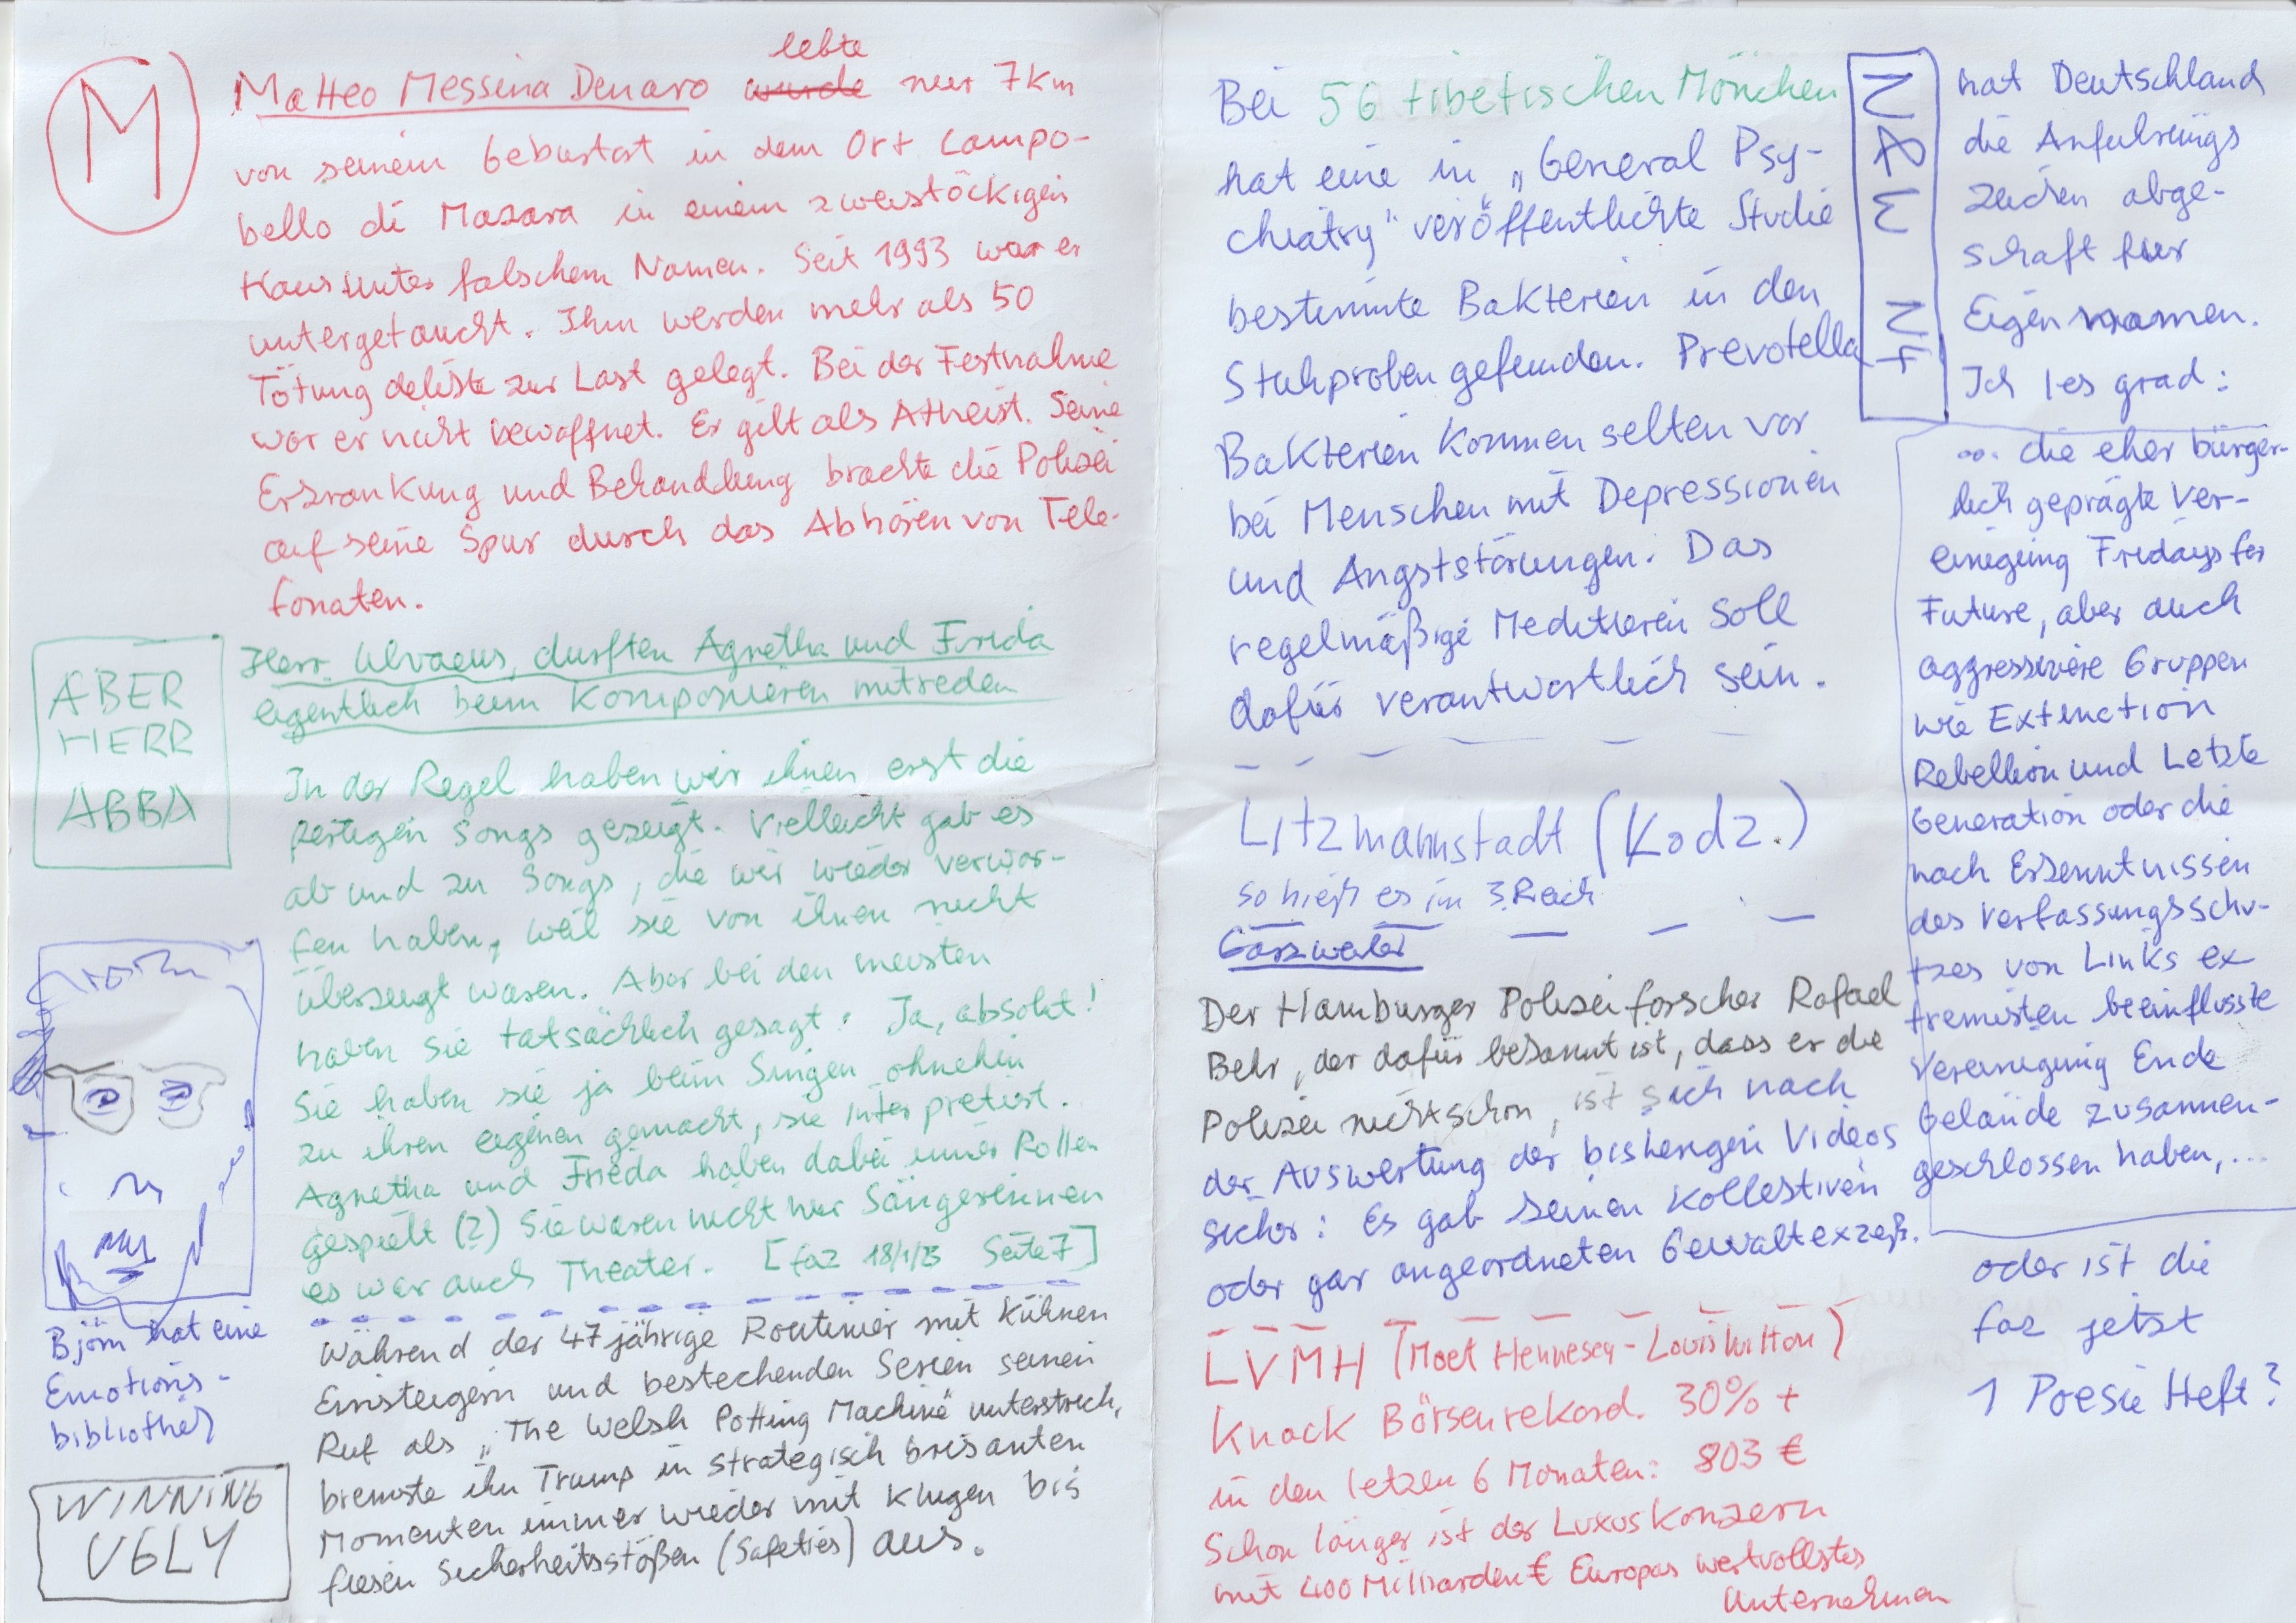 M
lebte
Matteo Messina Denaro wurde nur 7km
von seinem Geburtort in dem Ort Campo-
bello di Mazara in einem zweistöckigen
Haus unter falschem Namen. Seit 1993 war er
untergetaucht. Ihm werden mehr als 50
Tötung delikte zur Last gelegt. Bei der Festnahme
war er nicht bewaffnet. Er gilt als Atheist. Seine
Erkrankung und Behandlung brachte die Polizei
auf seine Spur durch das Abhören von Tele-
fonaten.
ABER
HERR
ABBA
Herr Ulvaeus, durften Agnetha und Frida
eigentlich beim Komponieren mitreden
In der Regel haben wir ihnen erst die
fertigen Songs gezeigt. Vielleicht gab es
ab und zu Songs, die wir wieder verwor-
fen haben, weil sie von ihnen nicht
überzeugt waren. Aber bei den meisten
haben sie tatsächlich gesagt: Ja, absolut!
Sie haben sie ja beim Singen ohnehin
zu ihren eigenen gemacht, sie interpretiert.
Agnetha und Frieda haben dabei immer Rollen
gespielt (2) Sie waren nicht nur Sängerinnen
es war auch Theater. [faz 18/1/23 Seite 7]
Björn hat eine
Emotions-
bibliothek
WINNING
UGLY
Während der 47 jährige Routinier mit kühnen
Einsteigern und bestechenden Serien seinen
Ruf als „The Welsh Potting Machine" unterstrich,
bremste ihn Trump in strategisch brisanten
Momenten immer wieder mit klugen bis
fiesen Sicherheitsstößen (Safeties) aus.
Bei 56 tibetischen Mönchen
hat eine in „General Psy-
chiatry" veröffentlichte Studie
bestimmte Bakterien in den
Stuhproben gefunden. Prevotella
Bakterien kommen selten vor
bei Menschen mit Depressionen
und Angststörungen. Das
regelmäßige Meditieren soll
dafür verantwortlich sein.
Litzmannstadt (Kodz.)
so hieß es im 3. Reich
Garzweiler
Der Hamburger Polizeiforscher Rafael
Behr, der dafür bekannt ist, dass er die
Polizei nicht schon, ist sich nach
der Auswertung der bisherigen Videos
sicher: Es gab keinen kollektiven
oder gar angeordneten Gewaltexzeß.
LVMH (Moet Hennesey-Louis Vuitton)
Knack Börsenrekord. 30% +
in den letzen 6 Monaten: 803 €
Schon länger ist der Luxuskonzern
mit 400 Milliarden € Europas wertvollstes
Unternehmen
hat Deutschland
die Anfuhrungs
zeichen abge-
schaft fur
Eigennamen.
Ich les grad:
... die eher bürger-
lich geprägte Ver-
einigung Fridays for
Future, aber auch
aggressivere Gruppen
wie Extinction
Rebellion und Letzte
Generation oder die
nach Erkenntnissen
des Verfassungsschu-
tzes von Links ex
tremisten beeinflusste
Vereinigung Ende
Gelände zusammen-
geschlossen haben,...
oder ist die
faz jetzt
1 Poesie Heft?